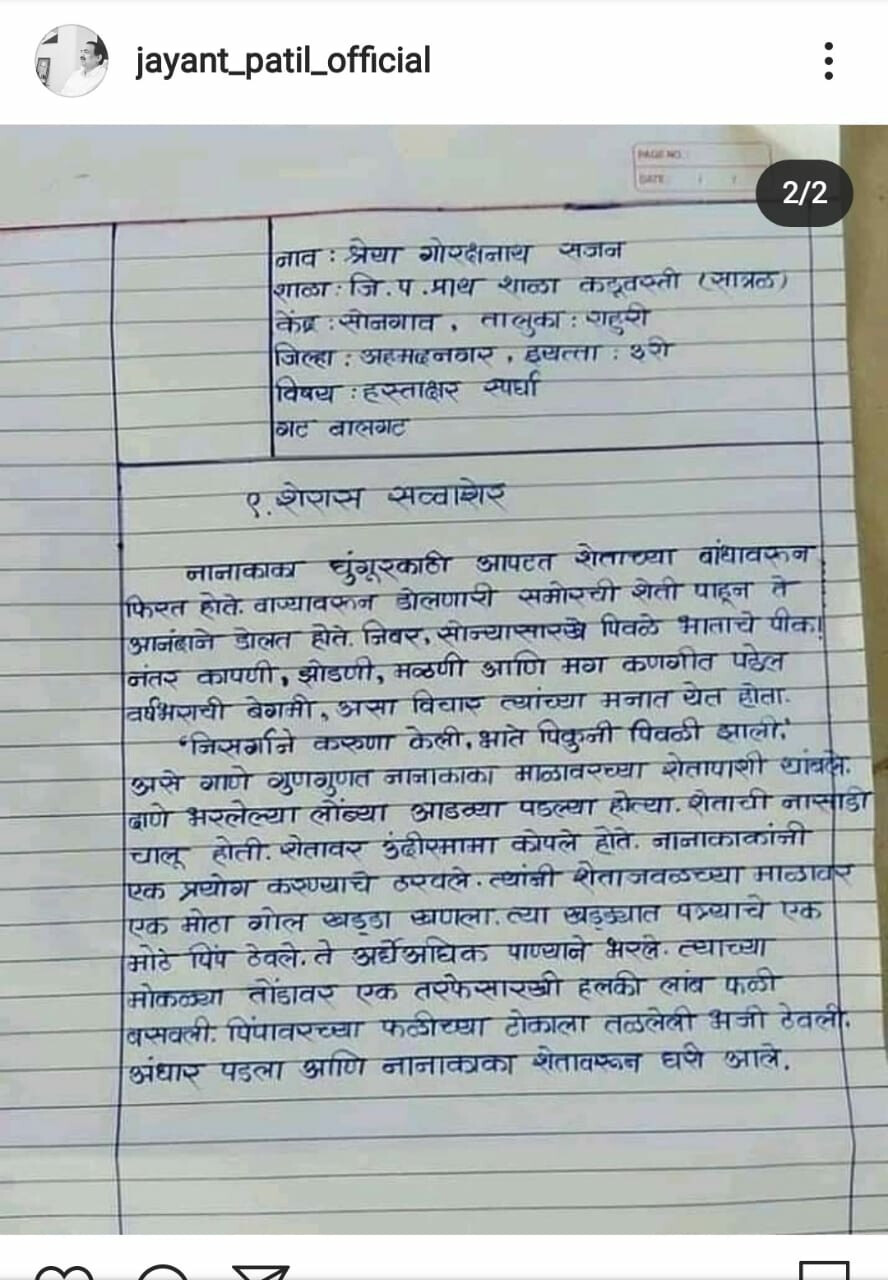 jayant_patil_official
PAGE NO.:
DATE: / /
2/2
नाव : श्रेया गोरक्षनाथ सजन
शाळा : जि.प.प्राथ शाळा कडूवस्ती (सात्रळ)
केंद्र : सोनगाव , तालुका : राहुरी
जिल्हा : अहमदनगर , इयत्ता : ३री
विषय : हस्ताक्षर स्पर्धा
गट बालगट
९. शेरास सव्वाशेर
नानाकाका घुंगूरकाठी आपटत शेताच्या बांधावरून
फिरत होते. वाऱ्यावरून डोलणारी समोरची शेती पाहून ते
आनंदाने डोलत होते. निबर, सोन्यासारखे पिवळे भाताचे पीक!
नंतर कापणी, झोडणी, मळणी आणि मग कणगीत पडेल
वर्षभराची बेगमी, असा विचार त्यांच्या मनात येत होता.
'निसर्गाने करुणा केली, भाते पिकुनी पिवळी झाली.'
असे गाणे गुणगुणत नानाकाका माळावरच्या शेतापाशी थांबले.
दाणे भरलेल्या लोंब्या आडव्या पडल्या होत्या. शेताची नासाडी
चालू होती. शेतावर उंदीरमामा कोपले होते. नानाकाकांनी
एक प्रयोग करण्याचे ठरवले. त्यांनी शेताजवळच्या माळावर
एक मोठा गोल खड्डा खणला. त्या खड्ड्यात पत्र्याचे एक
मोठे पिंप ठेवले. ते अर्धेअधिक पाण्याने भरले. त्याच्या
मोकळ्या तोंडावर एक तरफेसारखी हलकी लांब फळी
बसवली. पिंपावरच्या फळीच्या टोकाला तळलेली भजी ठेवली.
अंधार पडला आणि नानाकाका शेतावरून घरी आले.